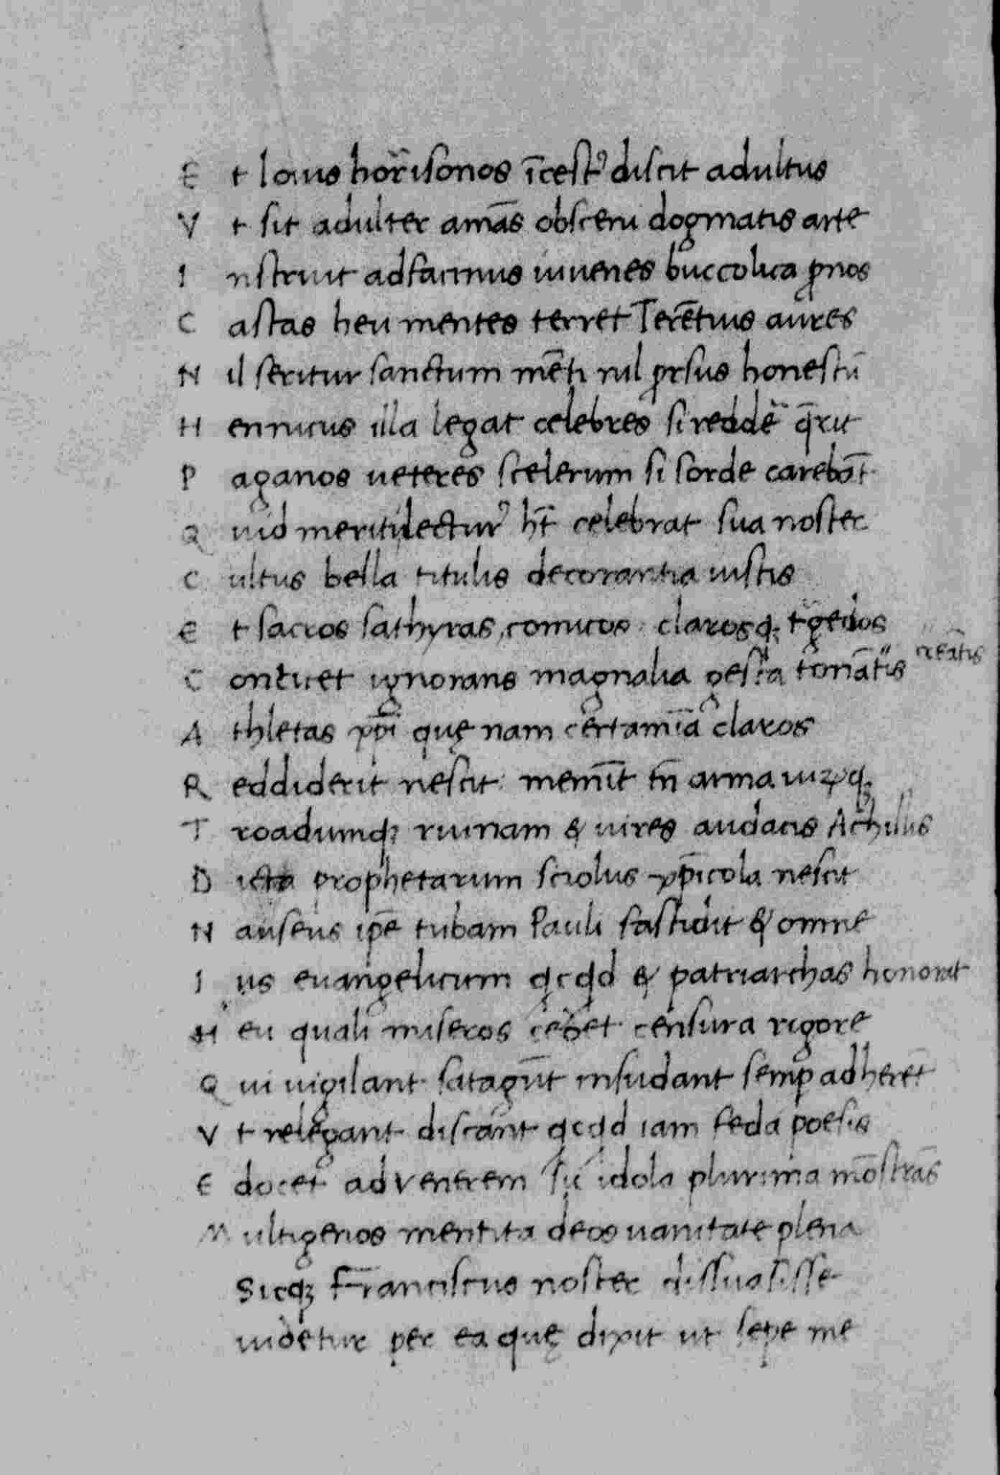 E t Iouis horrisonos īcest᾽ discit adultus
V t sit adulter amās obsceni dogmatis arte
I nstruit ad facinus iuuenes buccolica p̄nos
C astas heu mentes terret Terētius aures
N il seritur sanctum mēti nil prsus honestū
H ennicus illa legat celebres si reddē q̄rit
P aganos ueteres scelerum si sorde carebāt
Q uid meriti lectur᾽ ht̄ celebrat sua noster
C ultus bella titulis decorantia iustis
E t sacros sathyras, comicos clarosq; tgedos
C ontuet ignorans magnalia gesta tonātis
A thletas xp̄i quę nam certamīa claros
R eddiderit nescit meminīt tn̄ arma uiꝝq;
T roadumq; ruinam & uires audacis Achillis
D icta prophetarum sciolus xp̄icola nescit
N auseus ip̄e tubam Pauli fastidit & omne
I us euangelicum qcqd & patriarchas honorat
H eu quali miseros censura rigore
Q ui uigilant satagūt insudant semp adherēt
V t relegant discant qcqd iam feda poesis
E docet ad Ventrem idola plurima mōstrās
M ultigenos mentita deos uanitate plena
Sicq; Frāciscus noster dissuasisse
uidetur per ea quę dixit ut sepe me